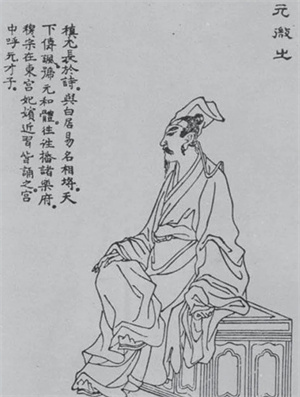 元微之
稹尤長於詩。與白居易名相埒。天
下傳諷。號元和體。徃徃播諸樂府。
穆宗在東宮。妃嬪近習皆誦之。宮
中呼元才子。